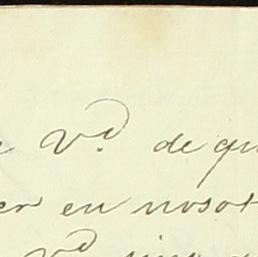 Vd. de qu
er en nosot
Vd